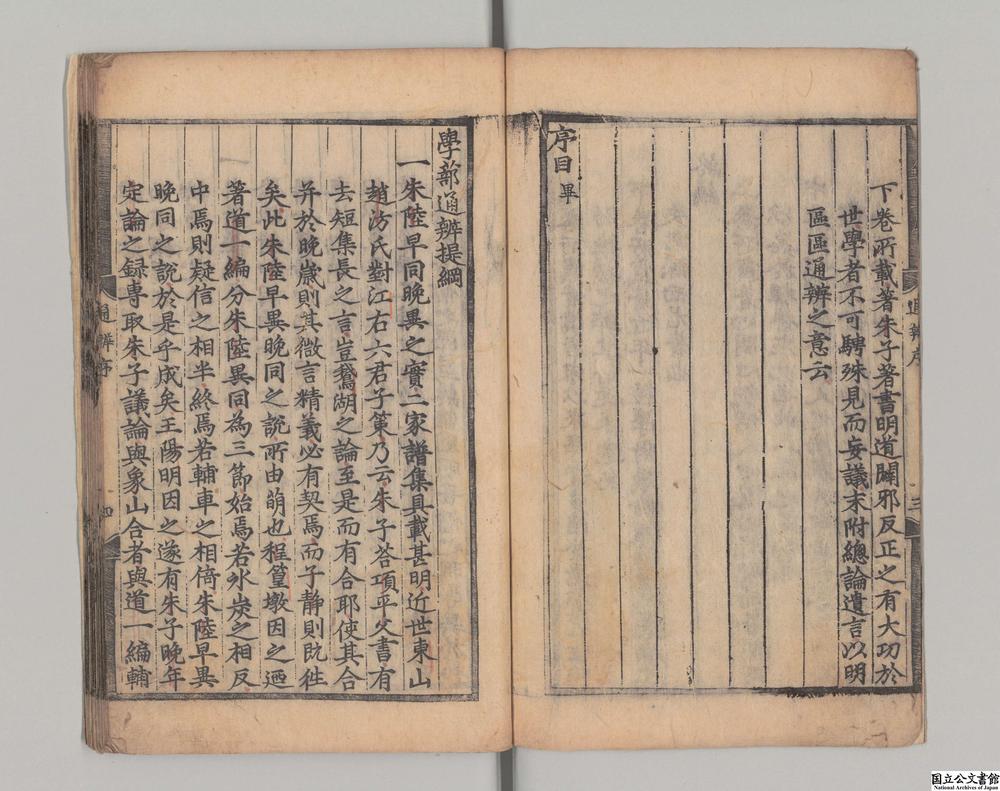 下卷所載著朱子著書明道闢邪反正之有大功於
世學者不可騁殊見而妄議末附總論遺言以明
區區通辨之意云
序目畢
通辨序
三
學蔀通辨提綱
一朱陸早同晚異之實二家譜集具載甚明近世東山
趙汸氏對江右六君子策乃云朱子荅項平父書有
去短集長之言豈鵞湖之論至是而有合耶使其合
并於晚歲則其微言精義必有契焉而子靜則旣徃
矣此朱陸早異晚同之說所由萌也程篁墩因之廼
著道一編分朱陸異同為三節始焉若氷炭之相反
中焉則疑信之相半終焉若輔車之相倚朱陸早異
晚同之說於是乎成矣王陽明因之遂有朱子晚年
定論之録專取朱子議論與象山合者與道一編輔
通辨序
四
国立公文書館
National Archives of Japan